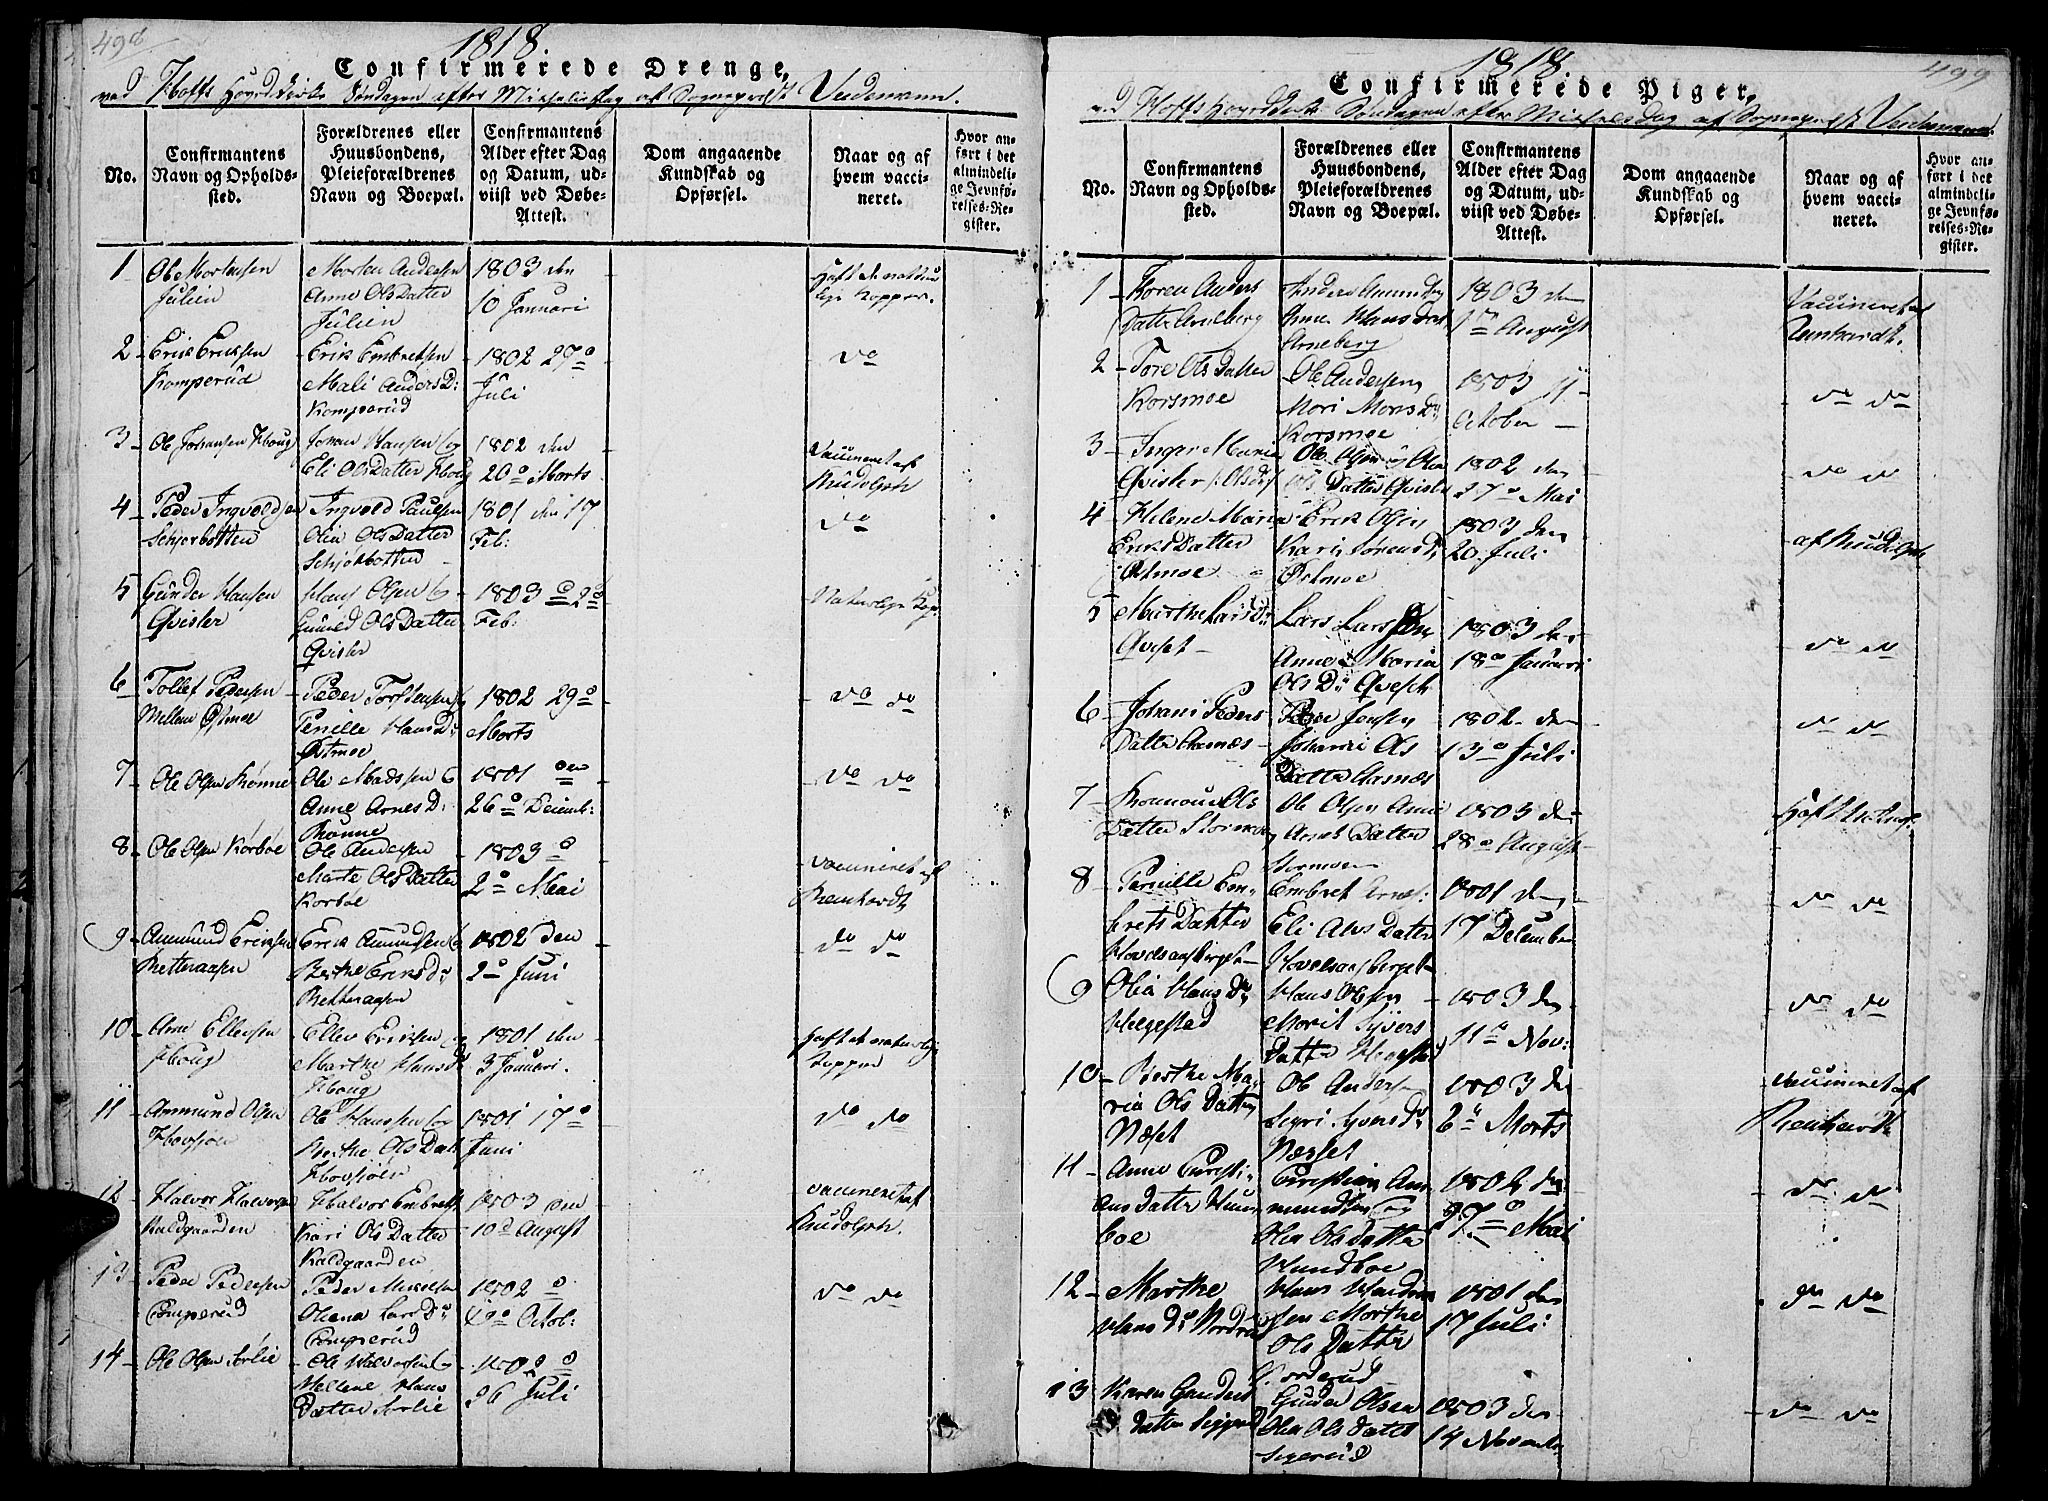 498
1818.
Confirmerede Drenge,
ved Hoffs Hovedkirke Søndagen efter Mikkelsdag af Sognepræst Veidemann.
No.
Confirmantens Navn og Opholdssted.
Forældrenes eller Huusbondens, Pleieforældrenes Navn og Boepæl.
Confirmantens Alder efter Dag og Datum, udviist ved Døbe-Attest.
Dom angaaende Kundskab og Opførsel.
Naar og af hvem vaccineret.
Hvor anført i det almindelige Jevnførelses-Register.
1 Ole Mortensen Julien
Morten Andersen Anne OlsDatter Julien
1803 den 10 Januari
haft de naturlige Kopper.
2 Erik Eriksen Komperud
Erik Embretsen Mali Anders D: Komperud
1802 27de Juli
do
3 Ole Johansen Houg
Johan Hansen og Eli OlsDatter Houg
1802 den 20de Marts
Vaccineret af Rudolph
4 Peder Ingvoldsen Schjørbotten
Ingvold Paulsen Olia OlsDatter Schjørbotten
1801 den 17 Feb:
do
5 Gunder Hansen Qvisler
Hans Olsen og Gunild OlsDatter Qvisler
1803 d 2d Feb:
Naturlige Kop.
6 Tollef Pedersen Mellem Ostmoe
Peder Torstensen Pernille Hans D: Østmoe
1802 29de Marts
do do
7 Ole Olsen Rønne
Ole Madssen og Anne Arnes D: Rønne
1801 den 26de Decemb:
do do
8 Ole Olsen Korboe
Ole Andersen Marte OlsDatter Korboe
1803 d 2de Mai
vaccineret af Reinhardt
9 Ammund Eriksen Retteraasen
Erik Amundsen og Berthe Eriks D: Retteraasen
1802 den 2de Juni
do do
10 Arne Ellevsen Houg
Ellev Eriksen og Marthe Hansd: Houg
1801 den 3 Januari.
haft de naturlige Kopper
11 Ammund Olsen Hovsjøen
Ole Hanssen og Berthe OlsDatt Hovsjøen
1801 17de Juni
do do
12 Halvor Halvorsen Kaldgaarden
Halvor Embrets Kari Ols Datter Kaldgaarden
1803 den 10de August
vaccineret af Rudolph.
13 Peder Pedersen Komperud
Peder Mikkelsen Oliana Lars D: Komperud
1802 d 19de Octob:
do do
14 Ole Olsen Sorlie
Ole Halvorsen og Mellene Hans Datter Sorlie
1802 d 26 Juli
499
1818
Confirmerede Piger,
ved Hoffs Hovedkirke Søndagen efter Mikkelsdag af Sognepræst Veidemann.
No.
Confirmantens Navn og Opholdssted.
Forældrenes eller Huusbondens, Pleieforældrenes Navn og Boepæl.
Confirmantens Alder efter Dag og Datum, udviist ved Døbe-Attest.
Dom angaaende Kundskab og Opførsel.
Naar og af hvem vaccineret.
Hvor anført i det almindelige Jevnførelses-Register.
1 Koren Anders Datter Arneberg
Anders Amundsen Anne Hans Dat Arneberg
1803 den August
Vaccineret af Reinhardt.
2 Tore Ols Datter Korsmoe
Ole Andersen Mori Mons D: Korsmoe
1803 11 October
do do
3 Inger Maria Qvisler Olsd
Ole Olsen og Olea Ols Datter Qvisler
1802 den 27de Mai
do do
4 Helene Maria EriksDatter Østmoe
Erik Olsen Karis Sørensd: Østmoe
1803 den 20 Juli
af Rudolph
5 Marthe Lars D: Qveset
Lars Larssen Anne Maria Ols D: Qveset
1803 den 18de Januari
do do
6 Johani Peders Datter Aasnæs
Peder Jensen Johanni Ols Datter Aasnæs
1802 den 13de Juli
do do
7 Ols Datter Stormoen
Ole Olsen Anne Arnes Datter Stormoen
1803 den 28de August
haft de Naturl.
8 Pernille Embrets Datter Hovelsaasberget
Embret Arnes: Eli Alvs Datter Hovelsaasberget
1801 den 17 December
do do
9 Olia Hans D: Helgestad
Hans Olsen Morit Syvers Datter Hegestad
1803 den 11de Nov:
do do
10 Berthe Maria Ols Datter Næset
Ole Anders Segri Syversd: Næsset
1803 den 6de Marts
vaccineret af Reinhardt
11 Anne Christians Datter Hundboe
Christian Ammundsen og Olea Olsdatter Hundboe
1802 den 27de Mai
do do
12 Marthe Hans D: Nordrud
Hans Marthe Ols Datter Norderud
1801 den 17 Juli
do do
13 Karen Gunders datter Siggerud
Gunder Olsen Olea Ols Datter Segerud
1803 den 14 Novemb:
do do